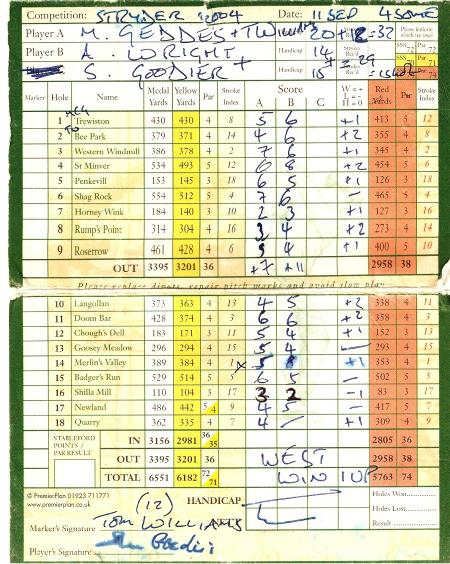 Competition: STRYDER 2004 Date: 11 SEP 4SOME
Player A M. GEDDES + T WILLIAMS 20+12=32
Player B A. WRIGHT + Handicap 14
S. GOODIER Handicap 15
Marker Hole Name Medal Yards Yellow Yards Par Stroke Index Score A B C W = + L = - H = 0 Red Yards Par Stroke Index
1 Trewiston 430 430 4 8 5 6 +1 413 5 12
2 Bee Park 379 371 4 14 4 6 +2 355 4 8
3 Western Windmill 386 378 4 2 7 6 +1 345 4 2
4 St Minver 493 493 5 12 6 8 +2 454 5 6
5 Penkevill 153 145 3 18 6 5 +1 126 3 18
6 Shag Rock 554 512 5 4 7 6 - 465 5 4
7 Horney Wink 184 140 3 10 2 3 +1 127 3 16
8 Rump's Point 314 304 4 16 3 4 +2 273 4 14
9 Roserrow 461 428 4 6 3 4 +1 400 5 10
OUT 3395 3201 36 +7 +11 2958 38
Please replace divots, repair pitch marks and avoid slow play
10 Langollan 373 363 4 13 4 5 +2 338 4 11
11 Doom Bar 428 374 4 3 6 6 +2 358 4 3
12 Chough's Dell 183 171 3 11 5 4 +1 152 3 13
13 Goosey Meadow 296 294 4 15 5 4 - 293 4 15
14 Merlin's Valley 389 384 4 1 x 5 8 +1 353 4 1
15 Badger's Run 529 514 5 5 6 5 - 502 5 5
16 Shilla Mill 110 104 3 17 3 2 -1 83 3 17
17 Newland 486 442 5 4 9 4 5 - 417 5 7
18 Quarry 335 335 4 7 4 - +1 309 4 9
STABLEFORD POINTS / PAR RESULT
IN 3156 2981 36 35 2805 36
OUT 3395 3201 36 WEST 2958 38
TOTAL 6551 6182 72 71 WIN 1UP 5763 74
© PremierPlan 01923 711771
www.premierplan.co.uk
(12) HANDICAP
Holes Won
Holes Lost
Result
Marker's Signature TOM WILLIAMS
Player's Signature